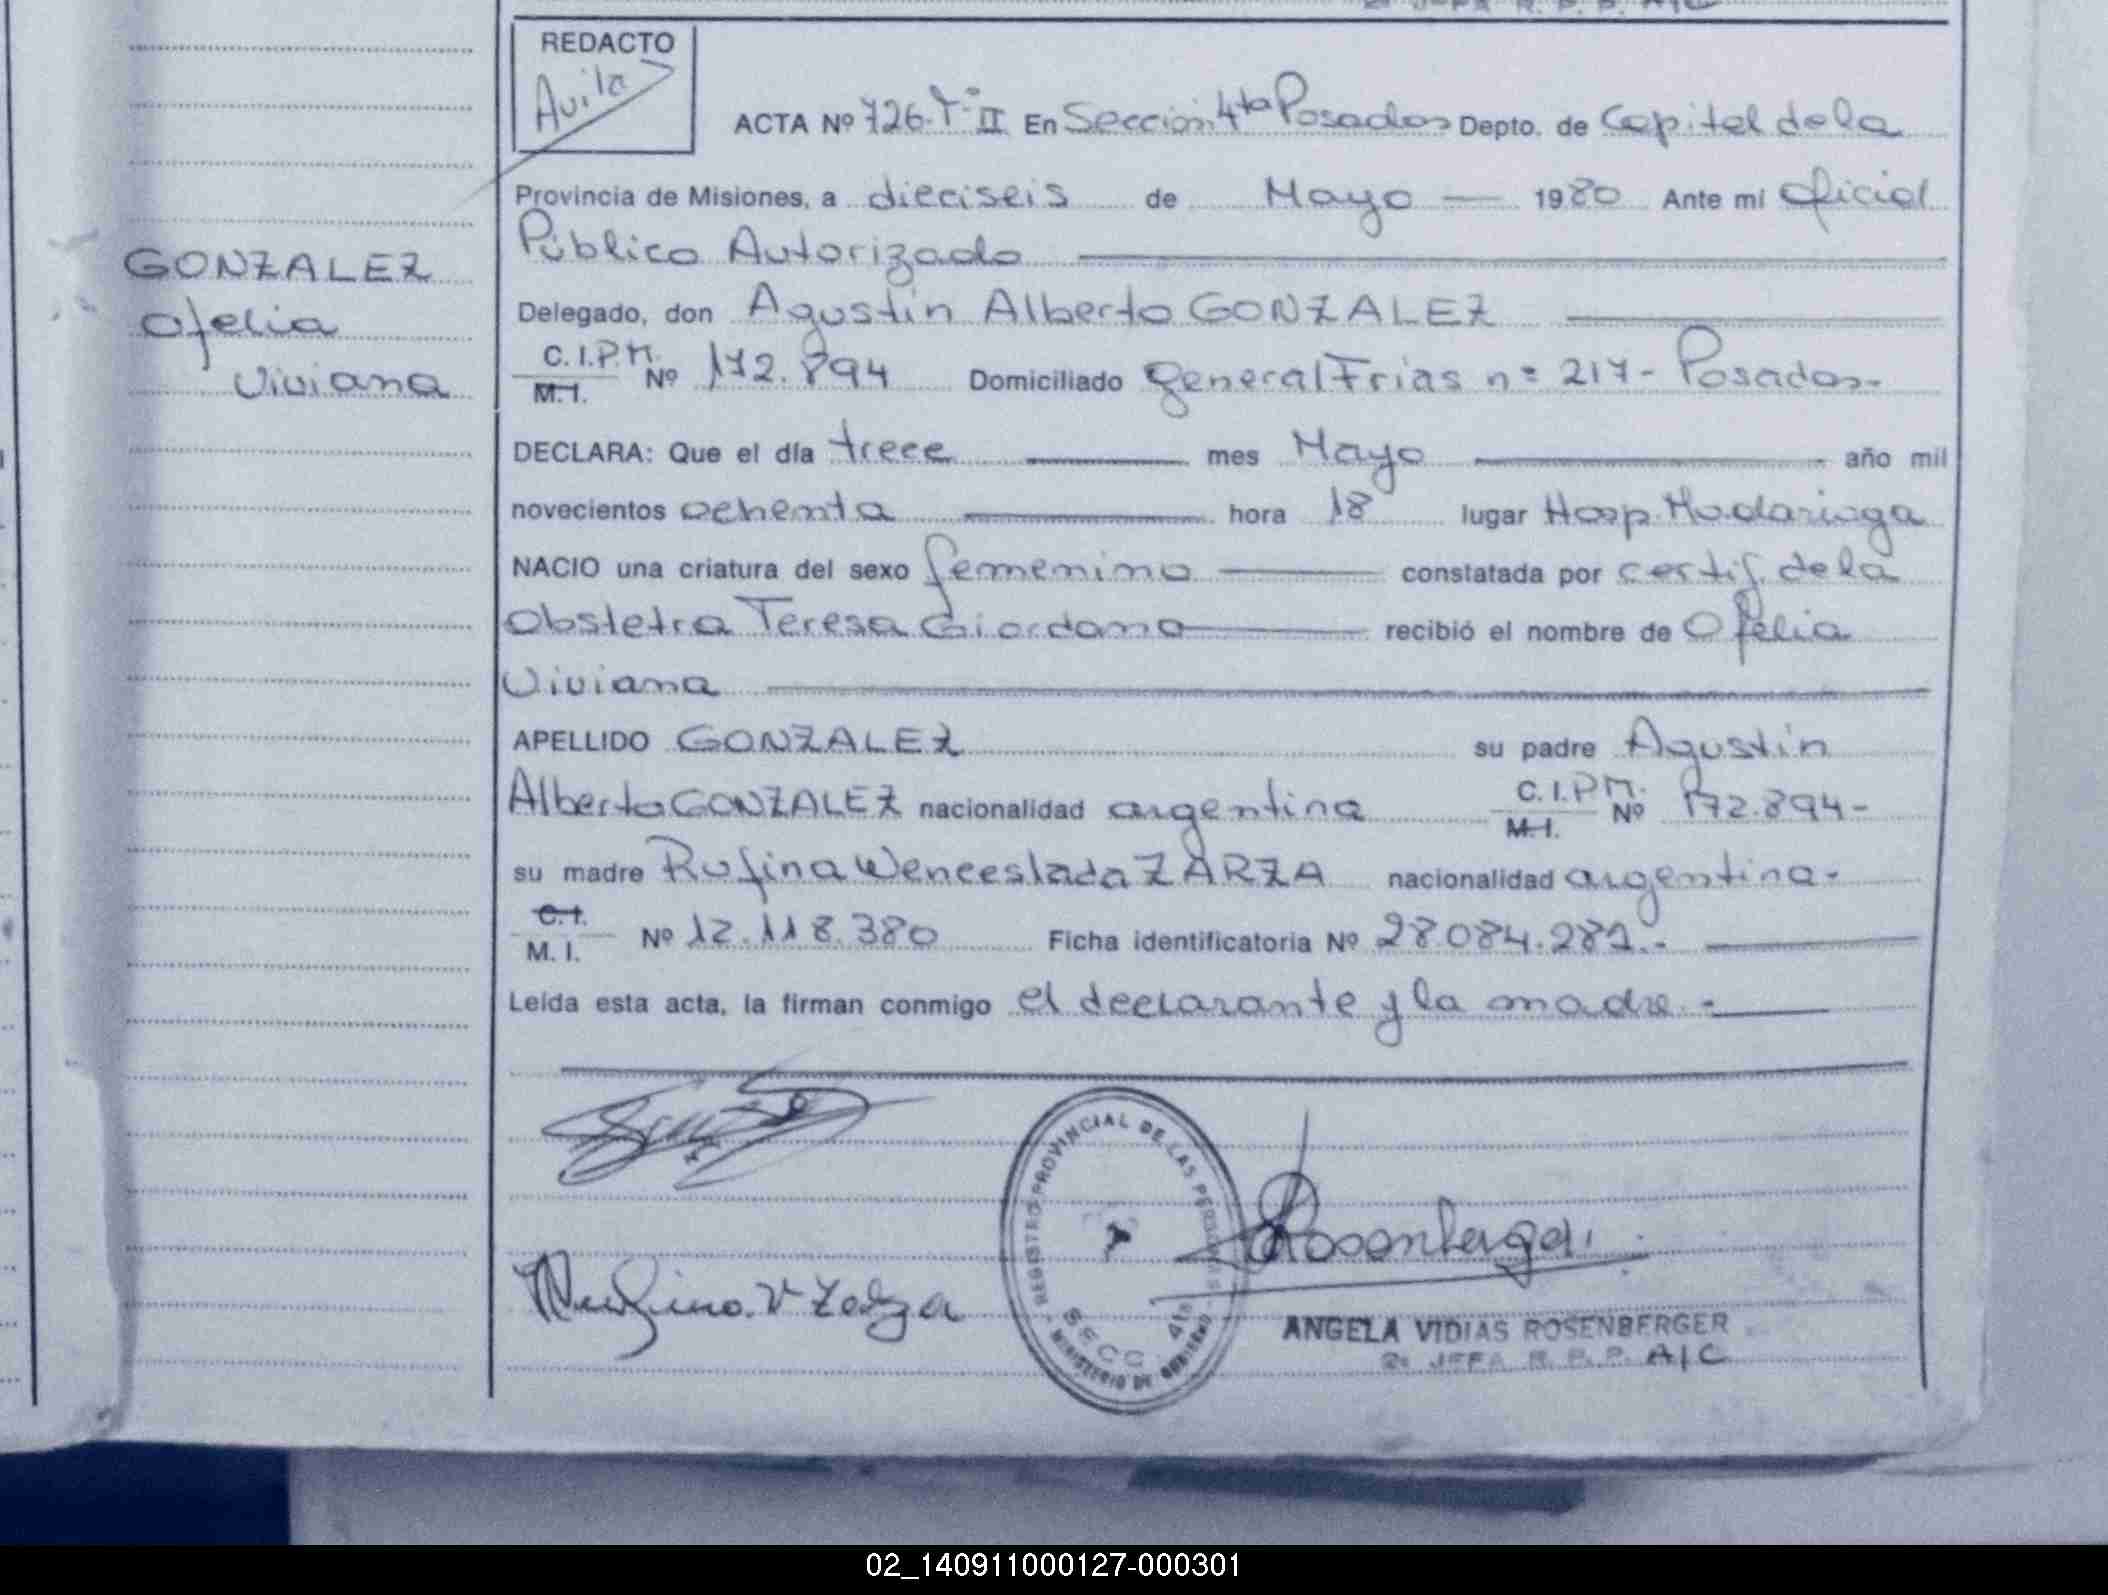 REDACTO
Avila
ACTA Nº 726. Tº II En Sección 4ta Posadas Depto. de Capital de la
Provincia de Misiones, a dieciseis de Mayo — 1980 Ante mí Oficial
Público Autorizado
GONZALEZ
Ofelia
Viviana
Delegado, don Agustín Alberto GONZALEZ
C.I.P.M.
M.I. Nº 172.894 Domiciliado general Frias nº 217 - Posadas.-
DECLARA: Que el día trece mes Mayo año mil
novecientos ochenta hora 18 lugar Hosp. Madariaga
NACIO una criatura del sexo femenino constatada por certif. de la
Obstetra Teresa Giordano recibió el nombre de Ofelia
Viviana
APELLIDO GONZALEZ su padre Agustín
Alberto GONZALEZ nacionalidad argentina C.I.P.M.
M.I. Nº 172.894-
su madre Rufina Wenceslada ZARZA nacionalidad argentina.-
C.I.
M.I. Nº 12.118.380 Ficha identificatoria Nº 28.084.282.-
Leída esta acta, la firman conmigo el declarante y la madre.-
REGISTRO PROVINCIAL DE LAS PERSONAS
SECC. 4ta
MINISTERIO DE GOBIERNO
Rosenberger
Rufina V Zarza
ANGELA VIDIAS ROSENBERGER
2o JEFA R. P. P. A/C
02_140911000127-000301